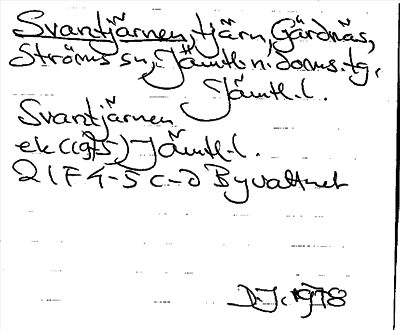 Svantjärnen, tjärn, Gärdnäs,
Ströms sn, Jämtl. n. doms. tg,
Jämtl. l.
Svantjärnen
ek (1975) Jämtl. l.
21F 4-5 c-d Byvattnet
D.J. 1978